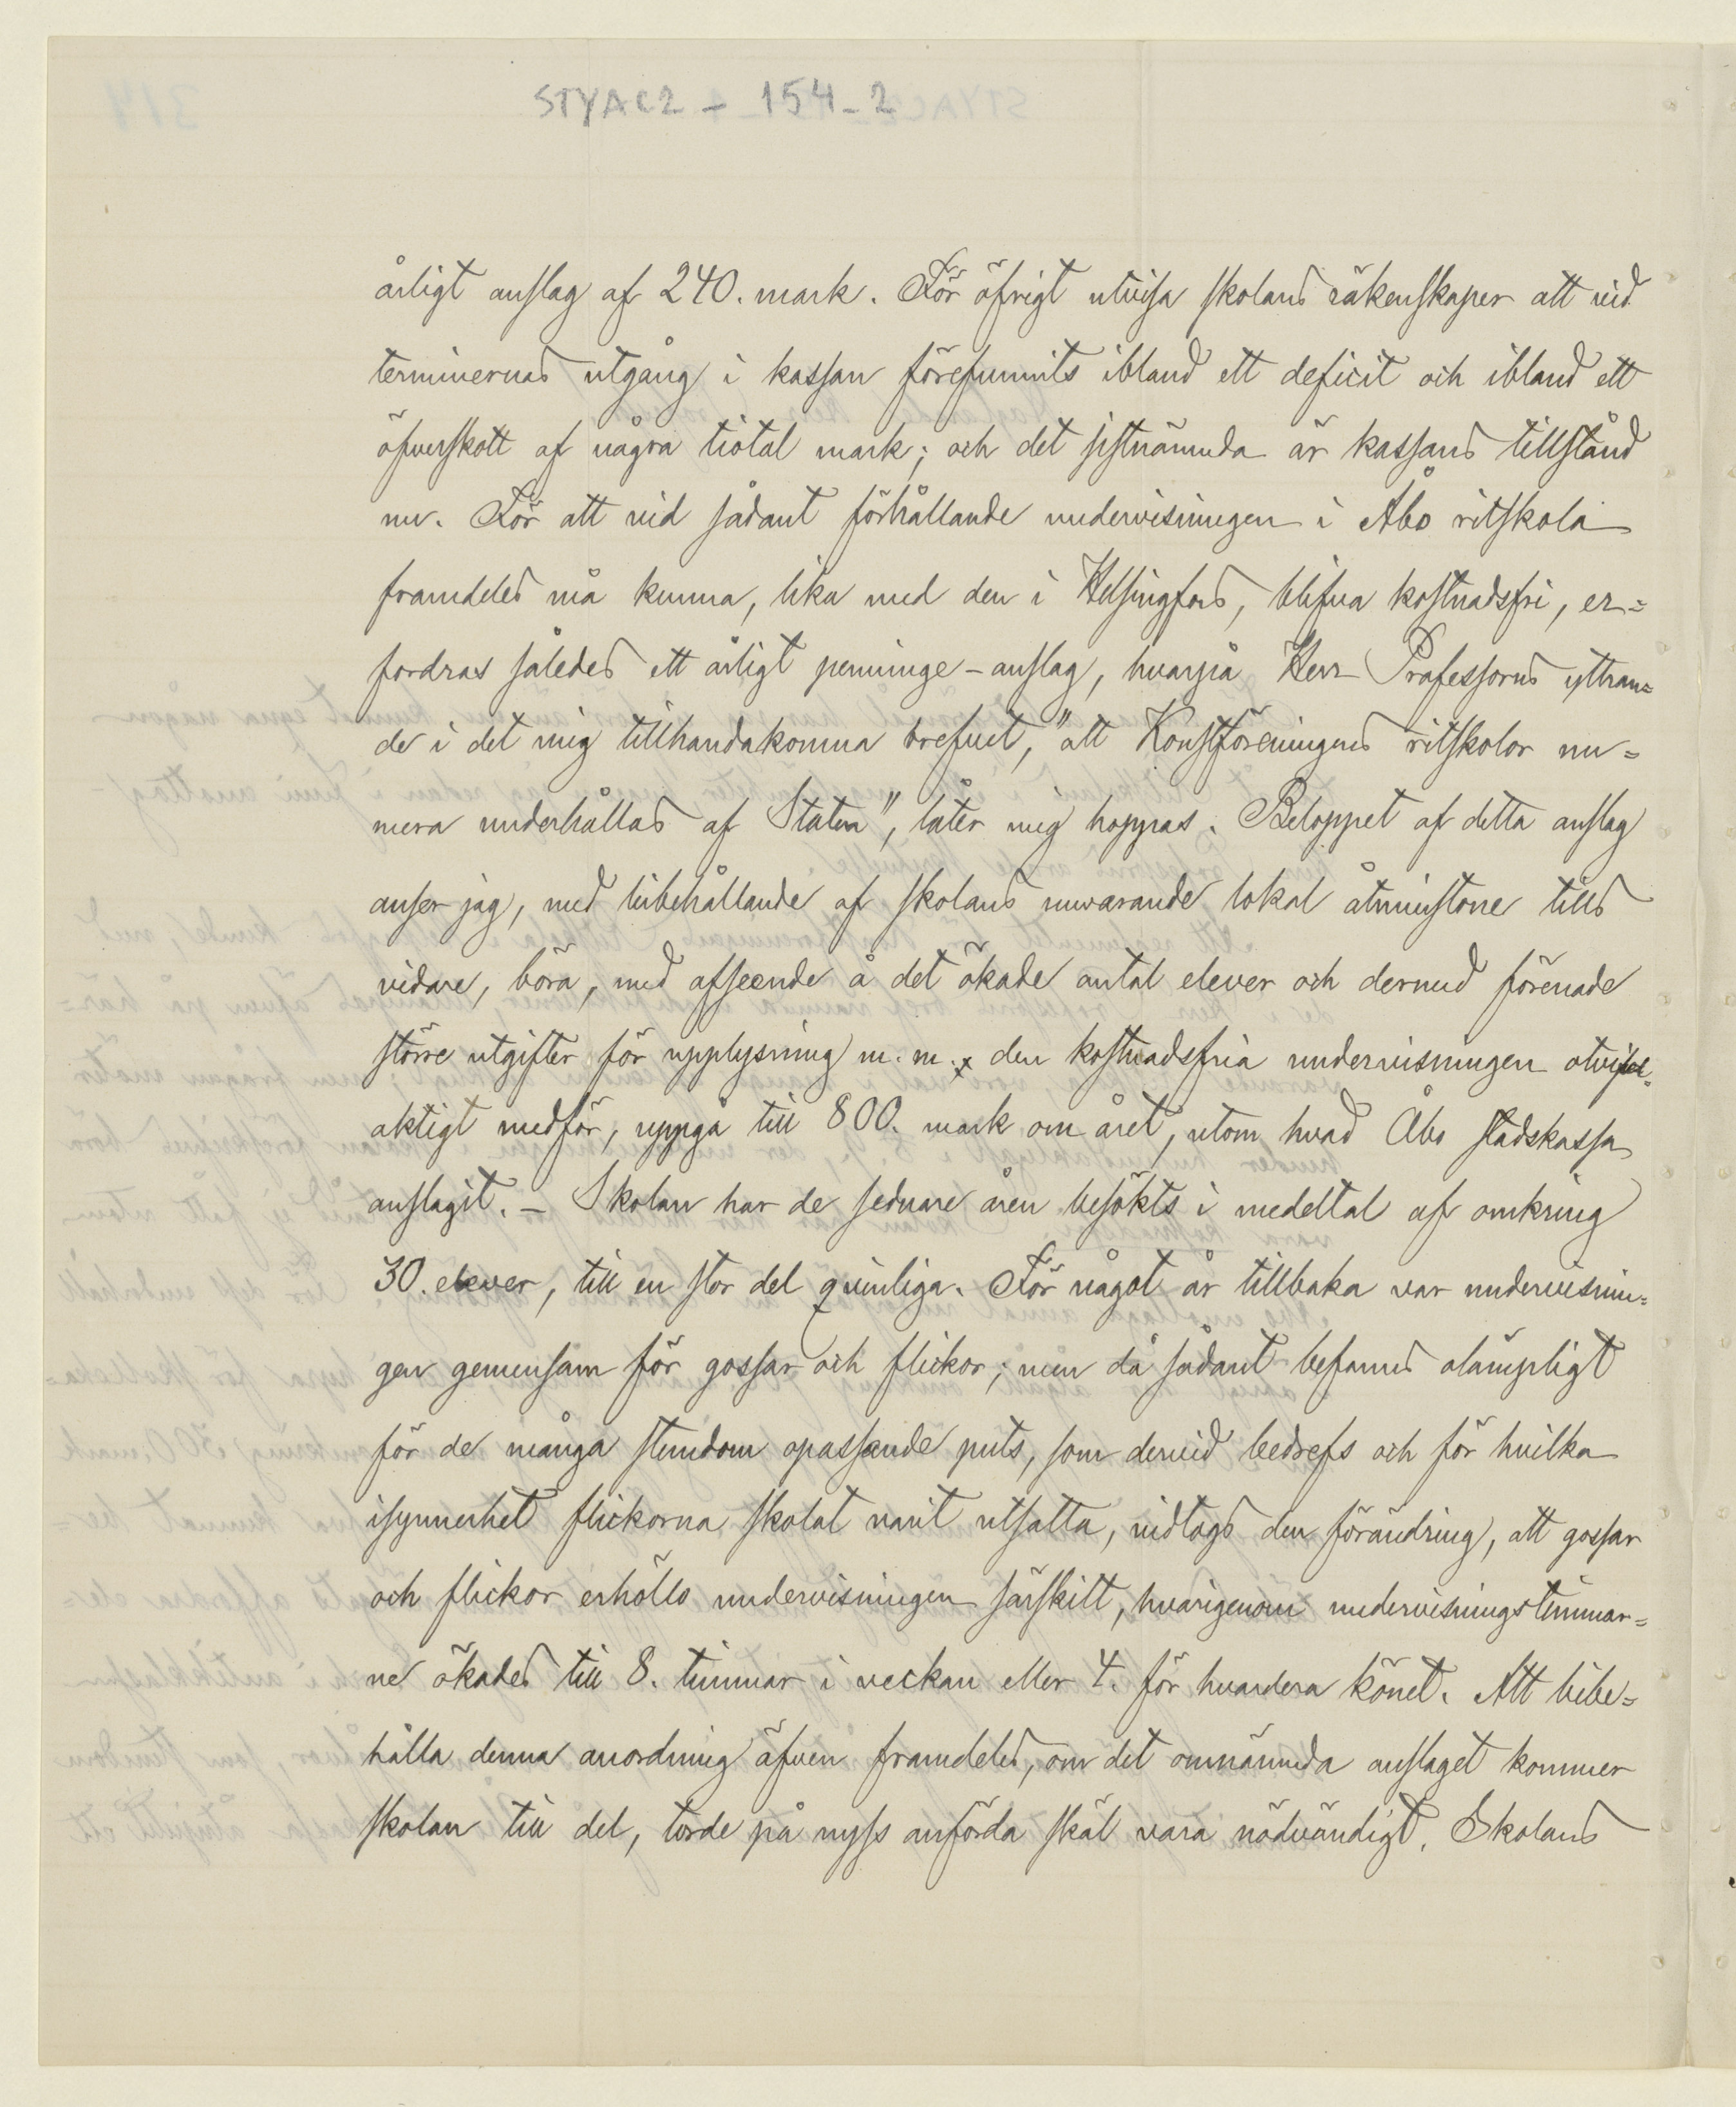 STYAC2 - 154-2
årligt anslag af 240. mark. För öfrigt utvisa skolans räkenskaper att vid
terminernas utgång i kassan förefunnits ibland ett deficit och ibland ett
öfverskott af några tiotal mark; och det sistnämnda är kassans tillstånd
nu. För att vid sådant förhållande undervisningen i Åbo ritskola
framdeles må kunna, lika med den i Helsingfors, blifva kostnadsfri, er=
fordras således ett årligt penninge-anslag, hvarpå Herr Professorns yttran=
de i det mig tillhandakomna brefvet, "att Konstföreningens ritskolor nu=
mera underhållas af Staten", låter mig hoppas. Beloppet af detta anslag
anser jag, med bibehållande af skolans nuvarande lokal åtminstone tills
vidare, böra, med afseende å det ökade antal elever och dermed förenade
större utgifter för upplysning m.m. x den kostnadsfria undervisningen otvifvel=
aktigt medför, uppgå till 800. mark om året, utom hvad Åbo stadskassa
anslagit. – Skolan har de sednare åren besökts i medeltal af omkring
30. elever, till en stor del qvinliga. För något år tillbaka var undervisnin=
gen gemensam för gossar och flickor; men då sådant befanns olämpligt
för de många stundom opassande puts, som dervid bedrefs och för hvilka
isynnerhet flickorna skolat varit utsatta, vidtogs den förändring, att gossar
och flickor erhöllo undervisningen särskilt, hvarigenom undervisningstimmar=
ne ökades till 8. timmar i veckan eller 4. för hvardera könet. Att bibe=
hålla denna anordning äfven framdeles, om det omnämnda anslaget kommer
skolan till del, torde på nyss anförda skäl vara nödvändigt. Skolans